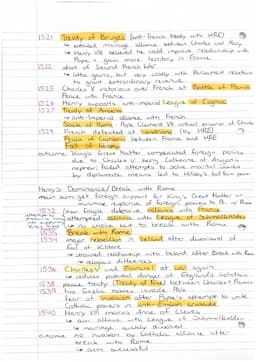 1521 Treaty of Bruges (anti-French treaty with HRE)
↳ entailed marriage alliance between Charles and Mary
↳ Henry VIII believed he could improve relationship with
Pope + gain more territory in France
1522 start of Second French War
↳ little gains, but very costly with Parliament reluctant
to grant extraordinary revenue
1525 Charles V victorious over French at Battle of Pavia
Peace with France
1526 Henry supports anti-imperial League of Cognac
1527 Treaty of Amiens
↳ anti-Imperial alliance with French
Sack of Rome, Pope Clement VII virtual prisoner of Charles
1529 French defeated at Landriano (by HRE)
Peace of Cambrai between France and HRE
Fall of Wolsey
outcome: King's Great Matter complicated foreign policy
due to Charles V being Catherine of Aragon's
nephew; failed attempts to solve marital issues
by diplomatic means led to Wolsey's fall from power
Henry's Dominance/Break with Rome
main aim: get foreign support for King's Great Matter or
minimise
of foreign powers to B. w/ Rome
1532 new, fragile defensive alliance with France
attempted alliance with League of Schmalkalden
↳ no choice but to break with Rome
1533 Break with Rome
1534 major rebellion in Ireland after dismissal of
Earl of Kildare
↳ strained relationship with Ireland after Break with Rome
↳ religious differences
1536 Charles V and Francis I at war again
↳ reduces potential danger of England's isolation
1538 peace treaty (Treaty of Nice) between Charles + Francis
1539 two Guelders
Pale
fear of invasion after Pope's attempt to unite
Catholic powers in anti-English crusade
1540 Henry VIII marries Anne of Cleves
↳ aim: alliance with League of Schmalkalden
↳ marriage quickly dissolved
outcome: no invasion by Catholic alliance after
break with Rome
↳ aim successful